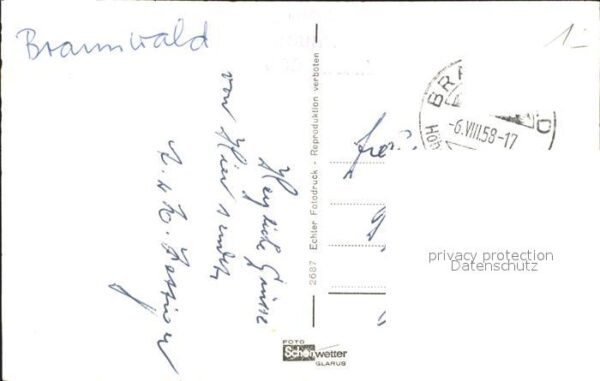 Braunwald
1.-
Herzliche Grüsse
von Hier sendet
2687 Echter Fotodruck - Reproduktion verboten
BRA D
-6.VIII.58-17
Höh
privacy protection
Datenschutz
FOTO
Schönwetter
GLARUS